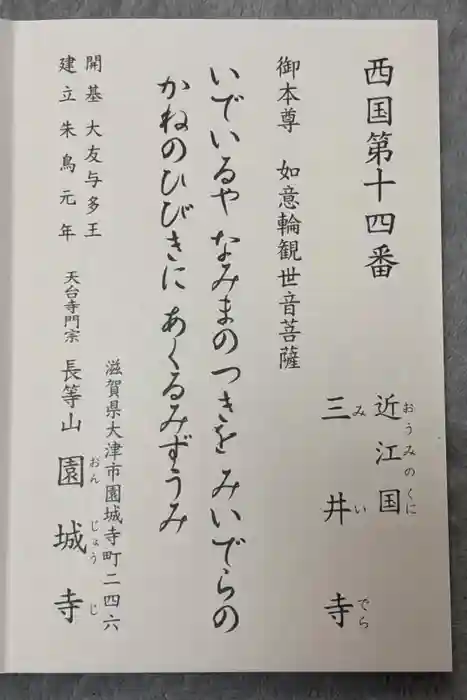 西国第十四番
近江国
おうみのくに
三井寺
みいでら
御本尊 如意輪観世音菩薩
いでいるや なみまのつきを みいでらの
かねのひびきに あくるみずうみ
開基 大友与多王
建立 朱鳥元年
滋賀県大津市園城寺町二四六
天台寺門宗 長等山 園城寺
おんじょうじ